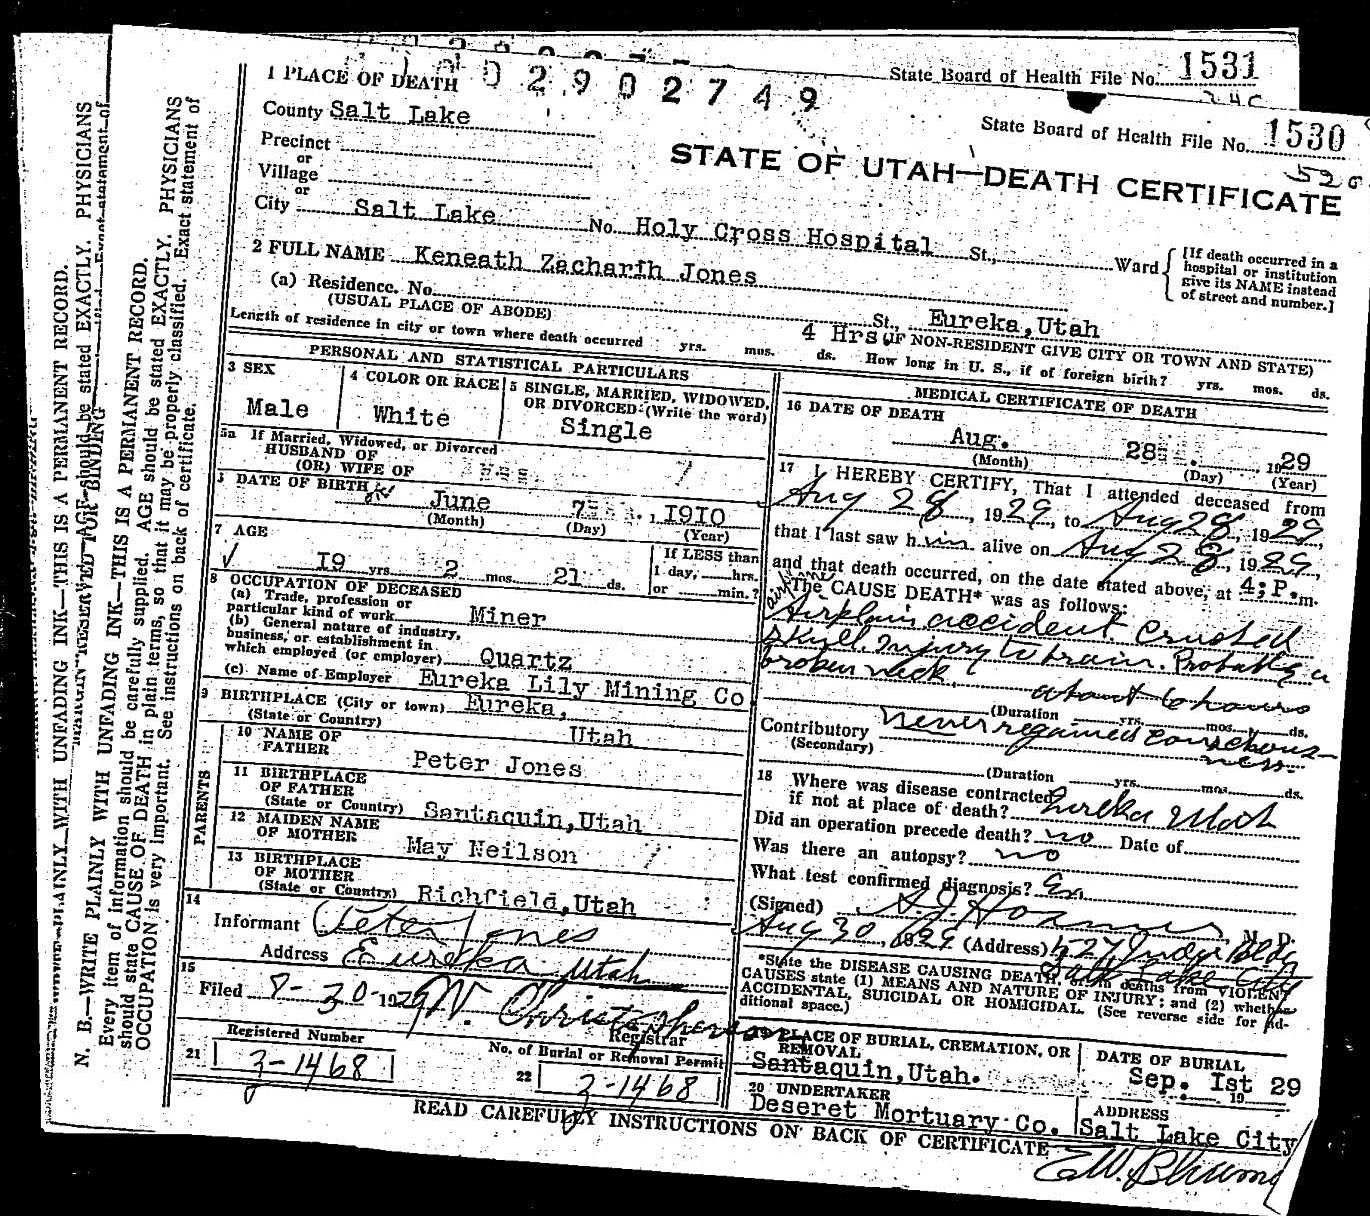 State Board of Health File No. 1531
1 PLACE OF DEATH
02902749
State Board of Health File No. 1530
County Salt Lake
STATE OF UTAH—DEATH CERTIFICATE
Precinct
or
Village
or
City Salt Lake No. Holy Cross Hospital St., Ward
[If death occurred in a
hospital or institution
give its NAME instead
of street and number.]
2 FULL NAME Keneath Zacharih Jones
(a) Residence. No. St., Eureka,Utah
(USUAL PLACE OF ABODE)
(IF NON-RESIDENT GIVE CITY OR TOWN AND STATE)
Length of residence in city or town where death occurred yrs. mos. ds. 4 Hrs How long in U. S., if of foreign birth? yrs. mos. ds.
PERSONAL AND STATISTICAL PARTICULARS
3 SEX
Male
4 COLOR OR RACE
White
5 SINGLE, MARRIED, WIDOWED,
OR DIVORCED (Write the word)
Single
5a If Married, Widowed, or Divorced
HUSBAND OF
(OR) WIFE OF
DATE OF BIRTH June 7 1910
(Month) (Day) (Year)
7 AGE
19 yrs. 2 mos. 21 ds.
If LESS than
1 day, hrs.
or min.?
8 OCCUPATION OF DECEASED
(a) Trade, profession or
particular kind of work Miner
(b) General nature of industry,
business, or establishment in
which employed (or employer) Quartz
(c) Name of Employer Eureka Lily Mining Co
9 BIRTHPLACE (City or town) Eureka,
(State or Country) Utah
PARENTS
10 NAME OF
FATHER Peter Jones
11 BIRTHPLACE
OF FATHER
(State or Country) Santaquin,Utah
12 MAIDEN NAME
OF MOTHER May Neilson
13 BIRTHPLACE
OF MOTHER
(State or Country) Richfield,Utah
14
Informant Peter Jones
Address Eureka Utah
15
Filed 8-30-1929 W. Christopherson
Registrar
Registered Number
21 3-1468
No. of Burial or Removal Permit
22 3-1468
MEDICAL CERTIFICATE OF DEATH
16 DATE OF DEATH
Aug. 28 1929
(Month) (Day) (Year)
17 I HEREBY CERTIFY, That I attended deceased from
Aug 28, 1929, to Aug 28, 1929,
that I last saw him alive on Aug 28, 1929,
and that death occurred, on the date stated above, at 4; P.m.
The CAUSE DEATH* was as follows:
Airplain accident. Crushed
skull. Injury to brain. Probably a
broken neck.
about 6 hours
(Duration yrs. mos. ds.
Contributory never regained conscious-
(Secondary) ness.
(Duration yrs. mos. ds.
18 Where was disease contracted
if not at place of death? Eureka Utah
Did an operation precede death? no Date of
Was there an autopsy? no
What test confirmed diagnosis? Ex.
(Signed) M. D.
Aug 30, 1929 (Address) 527 Judge Bldg
Salt Lake City
*State the DISEASE CAUSING DEATH, or in deaths from VIOLENT
CAUSES state (1) MEANS AND NATURE OF INJURY; and (2) whether
ACCIDENTAL, SUICIDAL OR HOMICIDAL. (See reverse side for ad-
ditional space.)
19 PLACE OF BURIAL, CREMATION, OR
REMOVAL
Santaquin,Utah.
DATE OF BURIAL
Sep. 1st 29
19
20 UNDERTAKER
Deseret Mortuary Co.
ADDRESS
Salt Lake City
READ CAREFULLY INSTRUCTIONS ON BACK OF CERTIFICATE
N. B.—WRITE PLAINLY WITH UNFADING INK—THIS IS A PERMANENT RECORD.
Every item of information should be carefully supplied. AGE should be stated EXACTLY. PHYSICIANS
should state CAUSE OF DEATH in plain terms, so that it may be properly classified. Exact statement of
OCCUPATION is very important. See instructions on back of certificate.